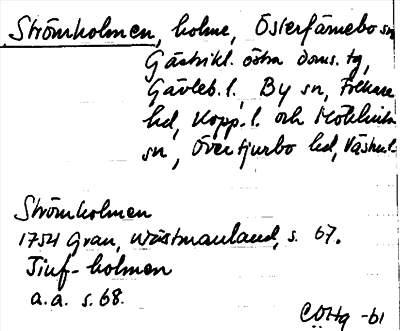 Strömholmen, holme, Österfärnebo sn
Gästrikl. östra doms. tg,
Gävleb. l. By sn, Folkare
hd, Kopp. l. och Möklinta
sn, Övertjurbo hd, Västml.
Strömholmen
1754 Grau, Wästmanland, s. 67.
Tiuf-holmen
a.a. s. 68.